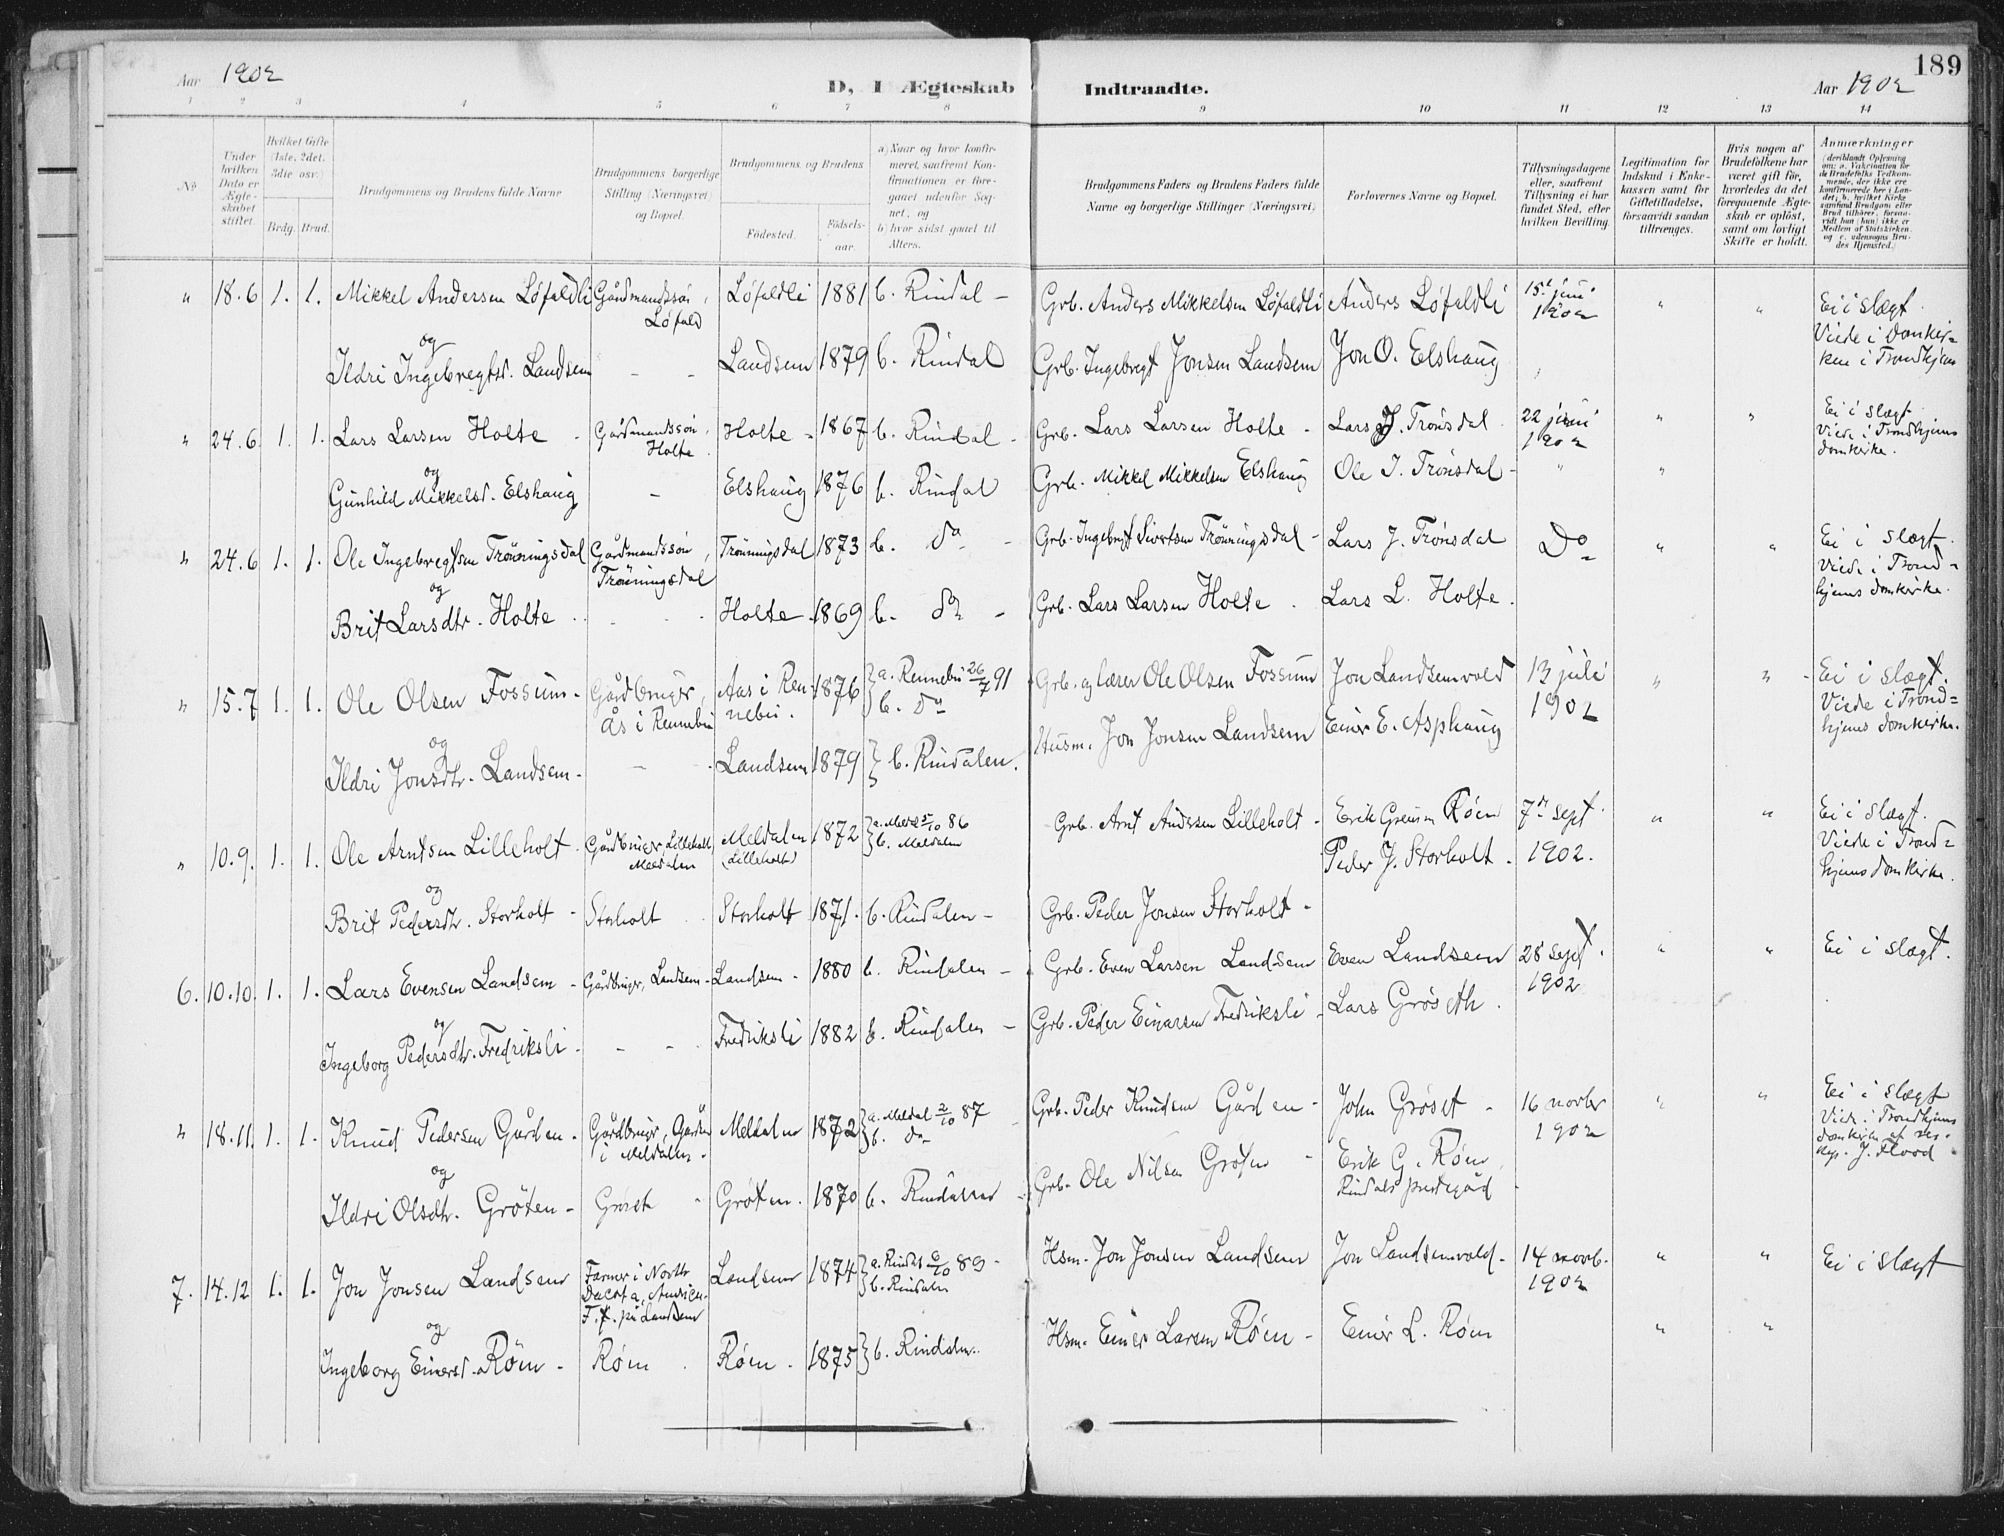 189
Aar 1902
D, I Ægteskab Indtraadte.
Aar 1902
1 2 3 4 5 6 7 8 9 10 11 12 13 14
№
Under hvilken Dato er Ægteskabet stiftet.
Hvilket Gifte (1ste, 2det, 3die osv.)
Brdg. Brud.
Brudgommens og Brudens fulde Navne
Brudgommens borgerlige Stilling (Næringsvei) og Bopæl.
Brudgommens og Brudens
Fødested.
Fødselsaar.
a) Naar og hvor konfirmeret, saafremt Konfirmationen er foregaaet udenfor Sognet, og
b) hvor sidst gaaet til Alters.
Brudgommens Faders og Brudens Faders fulde Navne og borgerlige Stillinger (Næringsvei)
Forlovernes Navne og Bopæl.
Tillysningsdagene eller, saafremt Tillysning ei har fundet Sted, efter hvilken Bevilling.
Legitimation for Indskud i Enkekassen samt for Giftetilladelse, forsaavidt saadan tiltrænges.
Hvis nogen af Brudefolkene har været gift før, hvorledes da det foregaaende Ægteskab er opløst, samt om lovligt Skifte er holdt.
Anmærkninger
" 18.6 1. 1. Mikkel Andersen Løfaldli Gårdmandssøn, Løfald Løfaldli 1881 b. Rindal - Grb. Anders Mikkelsen Løfaldli Anders Løfaldli 15de juni 1902 " " Ei i slægt. Viede i Domkirken i Trondhjem
og
Ildri Ingebregtsd. Landsem - - Landsem 1879 b. Rindal Grb. Ingebregt Jonsen Landsem Jon O. Elshaug "
" 24.6. 1. 1. Lars Larsen Holte - Gårdmandssøn, Holte. Holte - 1867 b. Rindal - Grb. Lars Larsen Holte - Lars J. Trønsdal. 22 juni 1902 " " Ei i slægt. Viede i Trondhjems domkirke.
og
Gunhild Mikkelsd. Elshaug - Elshaug 1876 b. Rindal Grb. Mikkel Mikkelsen Elshaug Ole I. Trønsdal - " "
" 24.6 1. 1. Ole Ingebregtsen Trønningsdal Gårdmandssøn, Trønningsdal Trønningsdal 1873 b. do - Grb. Ingebregt Sivertsen Trønningsdal - Lars J. Trønsdal Do " " Ei i slægt. Viede i Trondhjems domkirke.
og
Brit Larsdtr. Holte . . . Holte - 1869 b. do - Grb. Lars Larsen Holte . Lars L. Holte.
" 15.7 1. 1. Ole Olsen Fossum - Gårdbruger, Ås i Rennebu Aas i Rennebu. 1876 a. Rennebu 26/7 91 b. do Grb. og lærer Ole Olsen Fossum Jon Landsemvold 13 juli 1902 " " Ei i slægt. Viede i Trondhjems domkirke.
og
Ildri Jonsdtr. Landsem - - . Landsem 1879 b. Rindalen. Husm. Jon Jonsen Landsem Einer E. Asphaug
" 10.9. 1. 1. Ole Arntsen Lilleholt. Gårdbruger, Lilleholt Meldalen Meldalen (Lilleholt) 1872 a. Meldal 5/10 86 b. Meldalen Grb. Arnt Andersen Lilleholt - Erik Røen 7de sept. 1902. " " Ei i slægt. Viede i Trondhjems domkirke.
og
Brit Pedersdtr. Storholt - Storholt Storholt 1871. b. Rindalen - Grb. Peder Jonsen Storholt - Peder J. Storholt.
6. 10.10. 1. 1. Lars Evensen Landsem - Gårdbruger, Landsem - Landsem - 1880 b. Rindalen - Grb. Even Larsen Landsem Even Landsem 28 sept. 1902 " " Ei i slægt.
og
Ingeborg Pedersdtr. Fredriksli - - - Fredriksli 1882 b. Rindalen - Grb. Peder Einarsen Fredriksli - Lars Grøseth.
" 18.11. 1. 1. Knud Pedersen Gården - Gårdbrugr, Gården i Meldalen. Meldalen 1872 a. Meldal 2/10 87 b. do Grb. Peder Knudsen Gården - John Grøset - 16 novbr 1902 " " Ei i slægt Viede i Trondhjems domkirke af res. kap. J. Flood
og
Ildri Olsdtr. Grøten - Grøset - Grøten. 1870 b. Rindalen - Grb. Ole Nilsen Grøten - Erik G. Røen, Rindals prestegård
7. 14.12 1. 1. Jon Jonsen Landsem Farmer i North Dacota, Amrica. F. t. på Landsem Landsem 1874 a. Rindal 6/10 89 - b. Rindalen Hsm. Jon Jonsen Landsem Jon Landsemvold - 14 novb. 1902 " " Ei i slægt
og
Ingeborg Einersd. Røen - Røen . Røen . 1875 b. Rindalen. Hsm. Einer Larsen Røen - Einer L. Røen " "